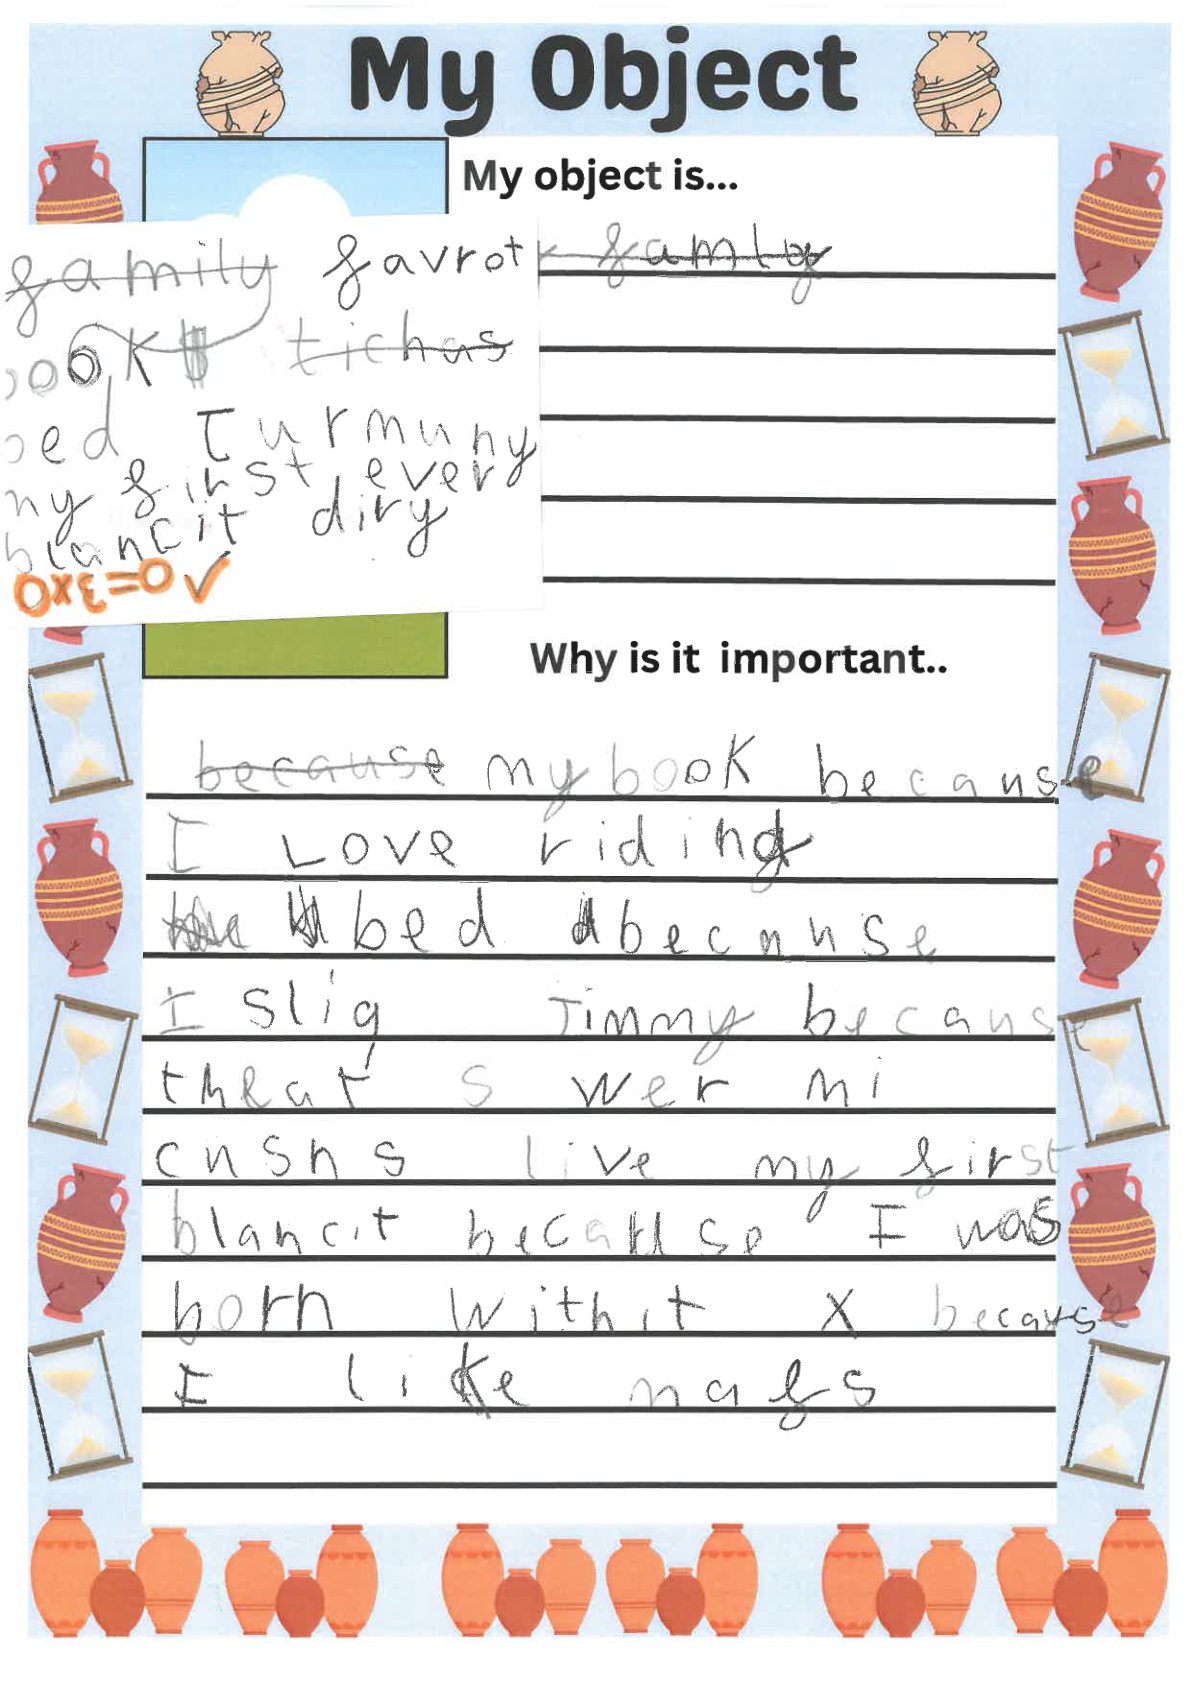 My Object
My object is...
family favrot family
books tichas
bed Turmuny
my first every
blancit diry
0x3=0 ✓
Why is it important..
because my book because
I Love riding
bed because
I slig Jimmy because
theat s wer mi
cushs live my first
blancit because I was
born withit x because
I like mafs